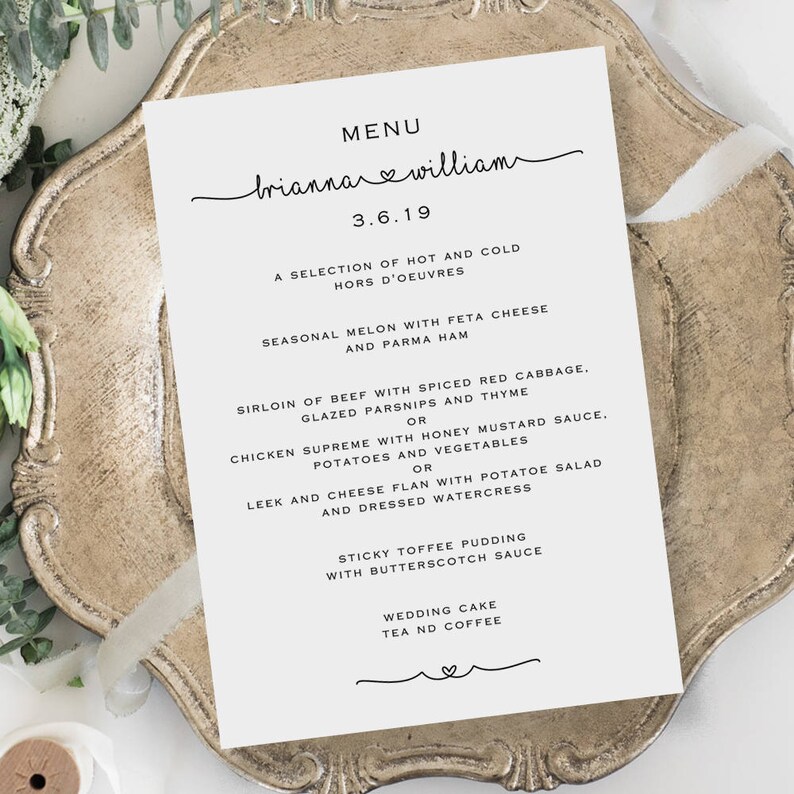 MENU
brianna william
3.6.19
A SELECTION OF HOT AND COLD
HORS D'OEUVRES
SEASONAL MELON WITH FETA CHEESE
AND PARMA HAM
SIRLOIN OF BEEF WITH SPICED RED CABBAGE,
GLAZED PARSNIPS AND THYME
OR
CHICKEN SUPREME WITH HONEY MUSTARD SAUCE,
POTATOES AND VEGETABLES
OR
LEEK AND CHEESE FLAN WITH POTATOE SALAD
AND DRESSED WATERCRESS
STICKY TOFFEE PUDDING
WITH BUTTERSCOTCH SAUCE
WEDDING CAKE
TEA ND COFFEE